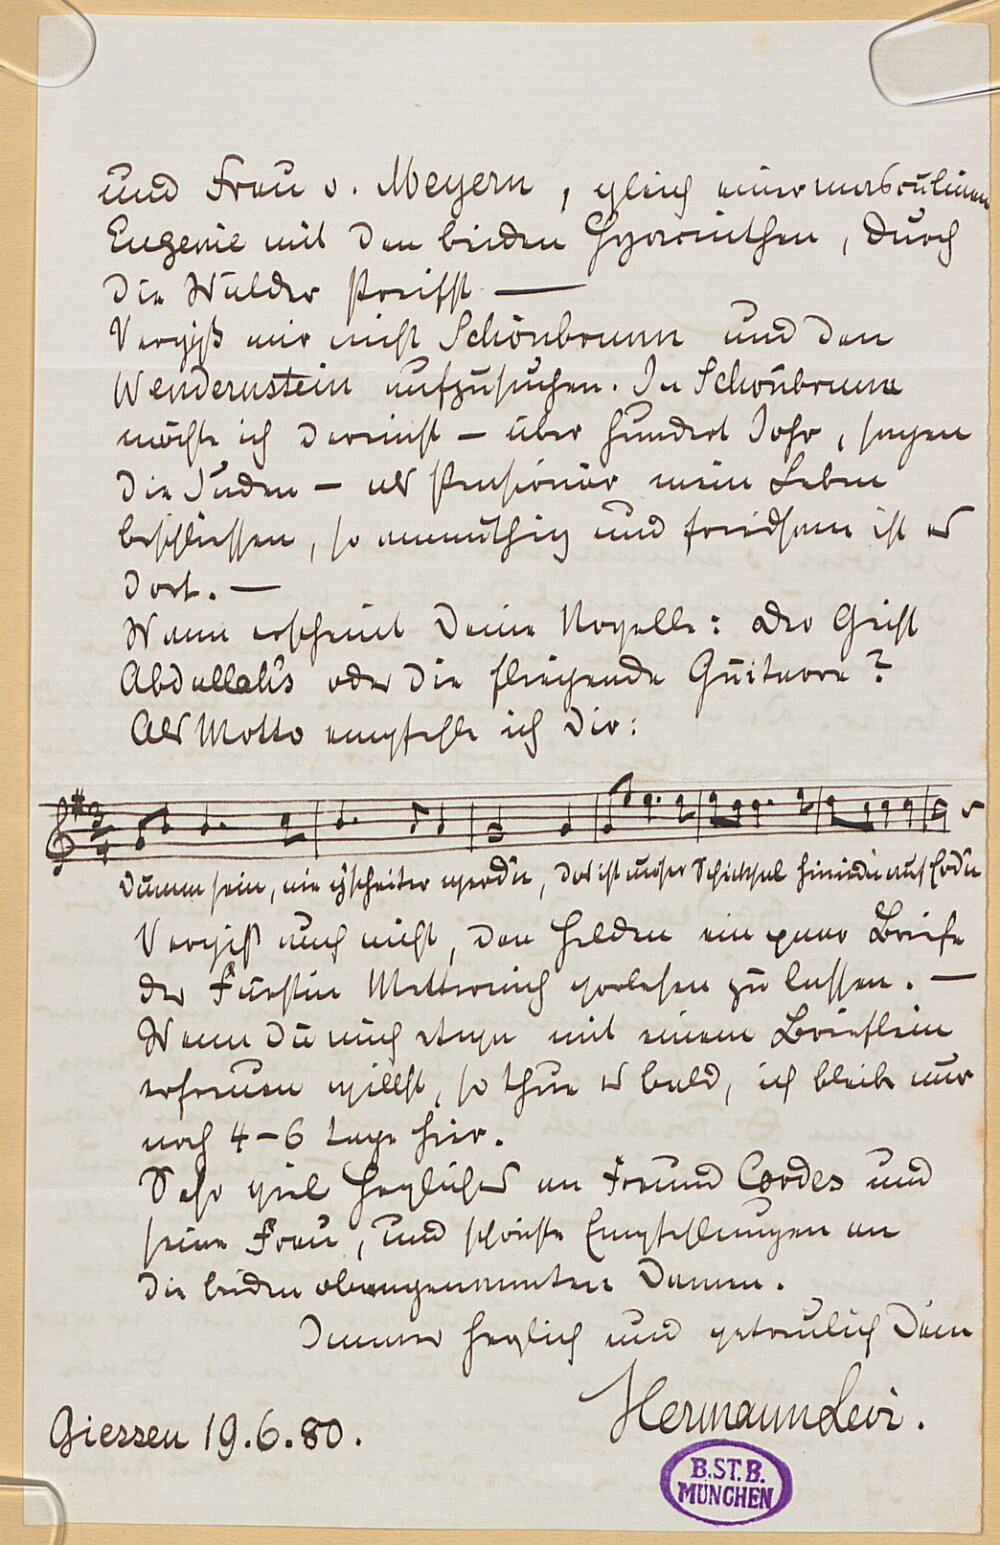 und Frau v. Meyern, gleich einer masculinen
Eugenie mit den beiden Hyacinthen, durch
die Wälder streifst —
Vergiß mir nicht Schönbrunn und den
Wendernstein aufzusuchen. In Schönbrunn
möchte ich dereinst – über hundert Johr, sagen
die Juden – als Pensionär mein Leben
beschliessen, so anmuthig und friedsam ist es
dort. —
Wann erscheint Deine Novelle: Der Geist
Abdallah's oder die fliegende Guitarre?
Als Motto empfehle ich Dir:
Dumm sein, nie g'scheiter werd'n, das ist unser Schicksal hienied'n auf Erd'n
Vergiß auch nicht, den Helden ein paar Briefe
der Fürstin Metternich vorlesen zu lassen. —
Wenn Du mich etwa mit einem Brieflein
erfreuen willst, so thue es bald, ich bleibe nur
noch 4–6 Tage hier.
Sehr viel Herzliches an Freund Cordes und
seine Frau, und schönste Empfehlungen an
die beiden obengenannten Damen.
Immer herzlich und getreulich Dein
Hermann Levi.
Giessen 19.6.80.
B.ST.B.
MÜNCHEN